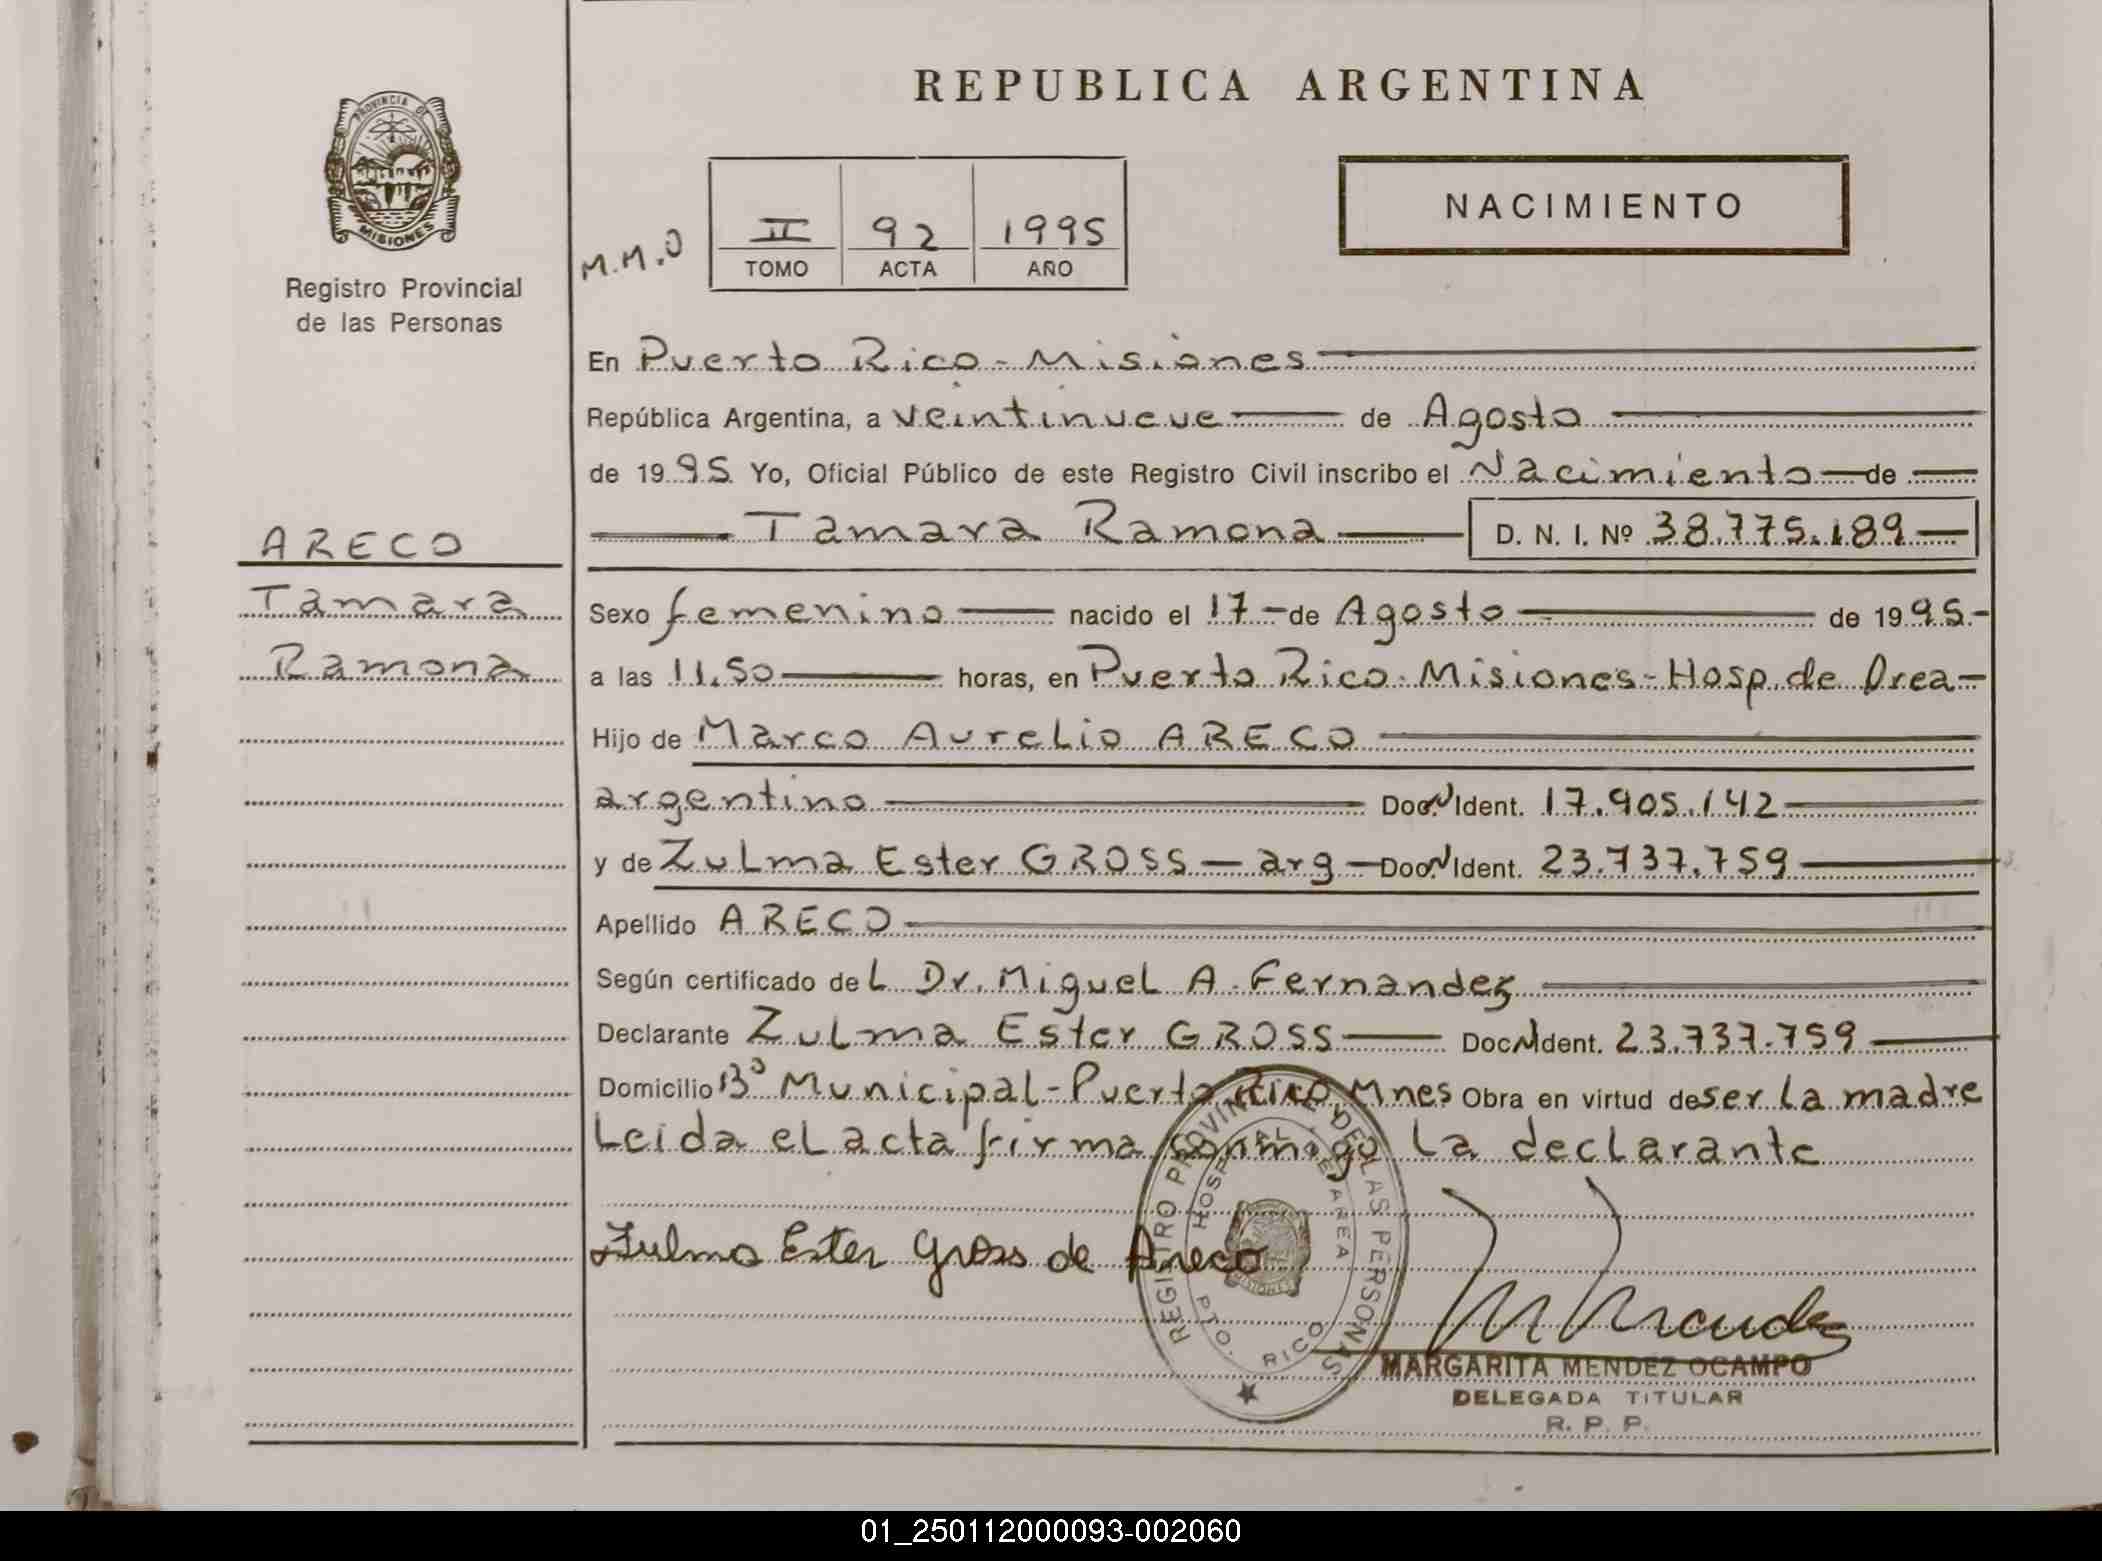 REPUBLICA ARGENTINA
PROVINCIA DE MISIONES
Registro Provincial
de las Personas
NACIMIENTO
M.M.O
II 92 1995
TOMO ACTA AÑO
En Puerto Rico - Misiones
República Argentina, a veintinueve de Agosto
de 1995 Yo, Oficial Público de este Registro Civil inscribo el Nacimiento de
Tamara Ramona D. N. I. Nº 38.775.189
ARECO
Tamara
Ramona
Sexo femenino nacido el 17 de Agosto de 1995
a las 11.50 horas, en Puerto Rico - Misiones - Hosp. de Area
Hijo de Marco Aurelio ARECO
argentino Doc. N Ident. 17.905.142
y de Zulma Ester GROSS - arg - Doc. N Ident. 23.737.759
Apellido ARECO
Según certificado del Dr. Miguel A. Fernandez
Declarante Zulma Ester GROSS Doc N Ident. 23.737.759
Domicilio Bº Municipal - Puerto Rico Mnes Obra en virtud de ser la madre
Leida el acta firma conmigo la declarante
Zulma Ester Gross de Areco
REGISTRO PROVINCIAL DE LAS PERSONAS
HOSPITAL DE AREA
PTO. RICO
MISIONES
M Mendez
MARGARITA MENDEZ OCAMPO
DELEGADA TITULAR
R. P. P.
01_250112000093-002060